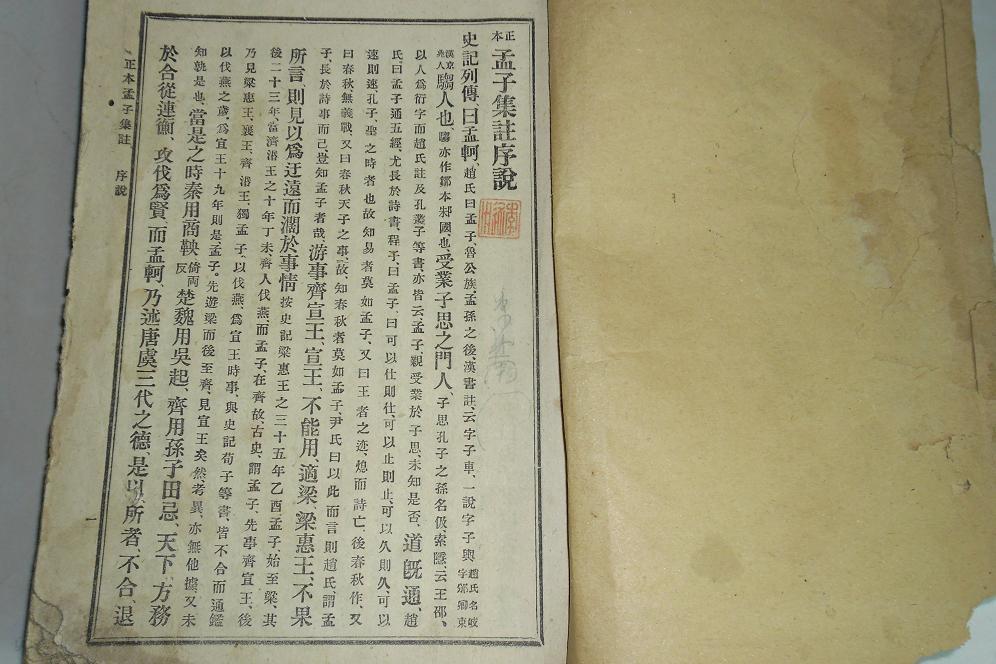 正本 孟子集註序說
史記列傳、曰孟軻、趙氏曰孟子魯公族、孟孫之後、漢書註、云字子車、一說字子輿 趙氏名岐字邠卿東
漢京兆人 騶人也、騶亦作鄒本邾國也、受業子思之門人、子思孔子之孫名伋、索隱、云王邵、
以人爲衍字而趙氏註及孔叢子等書、亦皆云、孟子、親受業於子思、未知是否、道旣通、趙
氏曰孟子通五經尤長於詩書、程子、曰孟子、曰可以仕則仕、可以止則止、可以久則久、可以
速則速、孔子、聖之時者也故知易者莫如孟子、又曰王者之迹、熄而詩亡、後春秋作、又
曰春秋無義戰、又曰春秋天子之事、故、知春秋者莫如孟子、尹氏曰以此而言則趙氏、謂孟
子、長於詩事而已、豈知孟子者哉、游事齊宣王、宣王、不能用、適梁、梁惠王、不果
所言、則見以爲迂遠而濶於事情 按史記梁惠王之三十五年乙酉孟子、始至梁、其
後二十三年、當濟湣王之十年丁未、齊人伐燕、而孟子、在齊故、古史、謂孟子、先事齊宣王、後
乃見梁惠王、襄王、齊湣王、獨孟子、以伐燕、爲宣王時事、與史記荀子等書、皆不合而通鑑
以伐燕之歲、爲宣王十九年則是、孟子。先遊梁而後至齊、見宣王矣、然、考異、亦無他據、又未
知孰是也、當是之時秦用商鞅 倚兩反 楚魏用吳起、齊用孫子田忌、天下、方務
於合從連衡、攻伐爲賢、而孟軻、乃述唐虞三代之德、是以、所者、不合、退
正本孟子集註 序說
一